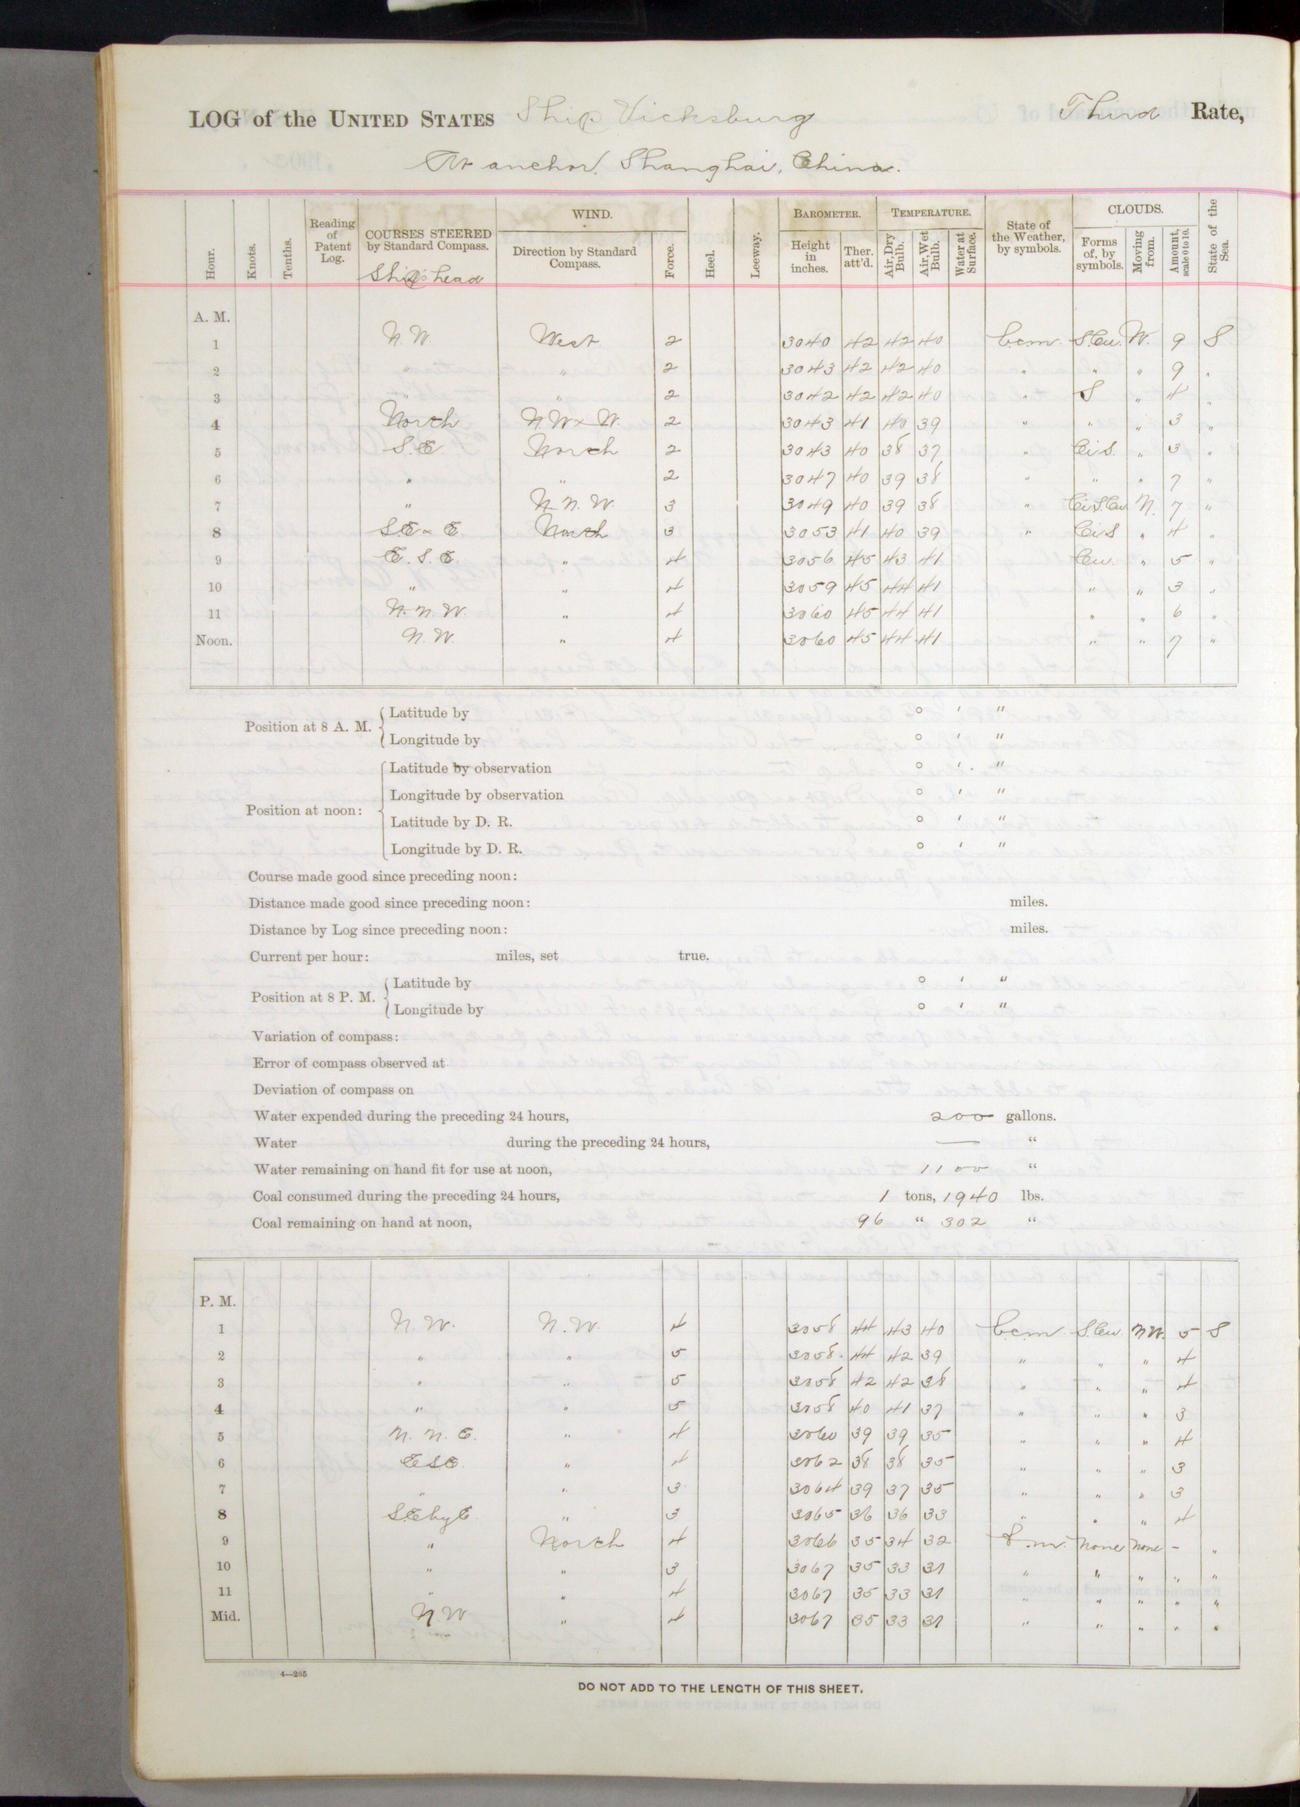 LOG of the UNITED STATES Ship Vicksburg Third Rate,
At anchor, Shanghai, China.
Hour. Knots. Tenths. Reading of Patent Log. COURSES STEERED by Standard Compass. Ship's head WIND. Direction by Standard Compass. Force. Heel. Leeway. BAROMETER. Height in inches. Ther. att'd. TEMPERATURE. Air, Dry Bulb. Air, Wet Bulb. Water at Surface. State of the Weather, by symbols. CLOUDS. Forms of, by symbols. Moving from. Amount, scale 0 to 10. State of the Sea.
A. M.
1 N.W. West 2 3040 42 42 40 bcm. S.Cu. W. 9 S
2 " " 2 3043 42 42 40 " " " 9 "
3 " " 2 3042 42 42 40 " S " 4 "
4 North N.W x W. 2 3043 41 40 39 " " " 3 "
5 S.E. North 2 3043 40 38 37 " Ci S. " 3 "
6 " " 2 3047 40 39 38 " " " 7 "
7 " N.N.W. 3 3049 40 39 38 " Ci S.Cu N. 7 "
8 S.E x E. North 3 3053 41 40 39 " Ci S " 4 "
9 E.S.E. " 4 3056 45 43 41 Cu. " 5 "
10 " " 4 3059 45 44 41 " " 3 "
11 N.N.W. " 4 3060 45 44 41 " " 6 "
Noon. N.W. " 4 3060 45 44 41 " " 7 "
Position at 8 A. M. Latitude by ° ′ ″
Longitude by ° ′ ″
Position at noon: Latitude by observation ° ′ ″
Longitude by observation ° ′ ″
Latitude by D. R. ° ′ ″
Longitude by D. R. ° ′ ″
Course made good since preceding noon:
Distance made good since preceding noon: miles.
Distance by Log since preceding noon: miles.
Current per hour: miles, set true.
Position at 8 P. M. Latitude by ° ′ ″
Longitude by ° ′ ″
Variation of compass:
Error of compass observed at
Deviation of compass on
Water expended during the preceding 24 hours, 200 gallons.
Water during the preceding 24 hours, — "
Water remaining on hand fit for use at noon, 1100 "
Coal consumed during the preceding 24 hours, 1 tons, 1940 lbs.
Coal remaining on hand at noon, 96 " 302 "
P. M.
1 N.W. N.W. 4 3058 44 43 40 bcm S.Cu. NW. 5 S
2 " " 5 3058. 44 42 39 " " " 4
3 " " 5 3058 42 42 38 " " " 4
4 " " 5 3058 40 41 37 " " " 3
5 N.N.E. " 4 3060 39 39 35 " " " 4
6 ESE. " 4 3062 38 38 35 " " " 3
7 " " 3 3064 39 37 35 " " " 3
8 SEbyE. " 3 3065 36 36 33 " " " 4
9 " North 4 3066 35 34 32 b.m. None None - "
10 " " 3 3067 35 33 31 " " " " "
11 " " 4 3067 35 33 31 " " " " "
Mid. N.W. " 4 3067 35 33 31 " " " " "
4—265
DO NOT ADD TO THE LENGTH OF THIS SHEET.